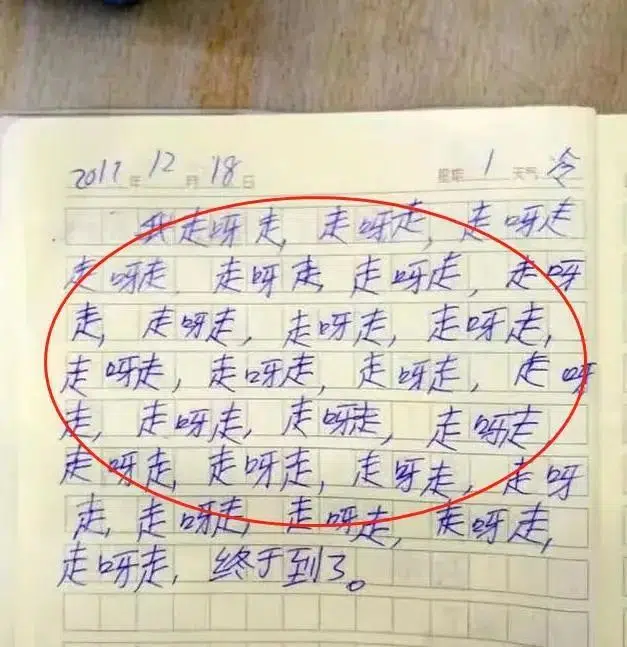 2017年12月18日 星期1 天气冷
我走呀走，走呀走，走呀走
走呀走，走呀走，走呀走，走呀
走，走呀走，走呀走，走呀走，
走呀走，走呀走，走呀走，走呀
走，走呀走，走呀走，走呀走
走呀走，走呀走，走呀走，走呀
走，走呀走，走呀走，走呀走，
走呀走，终于到了。